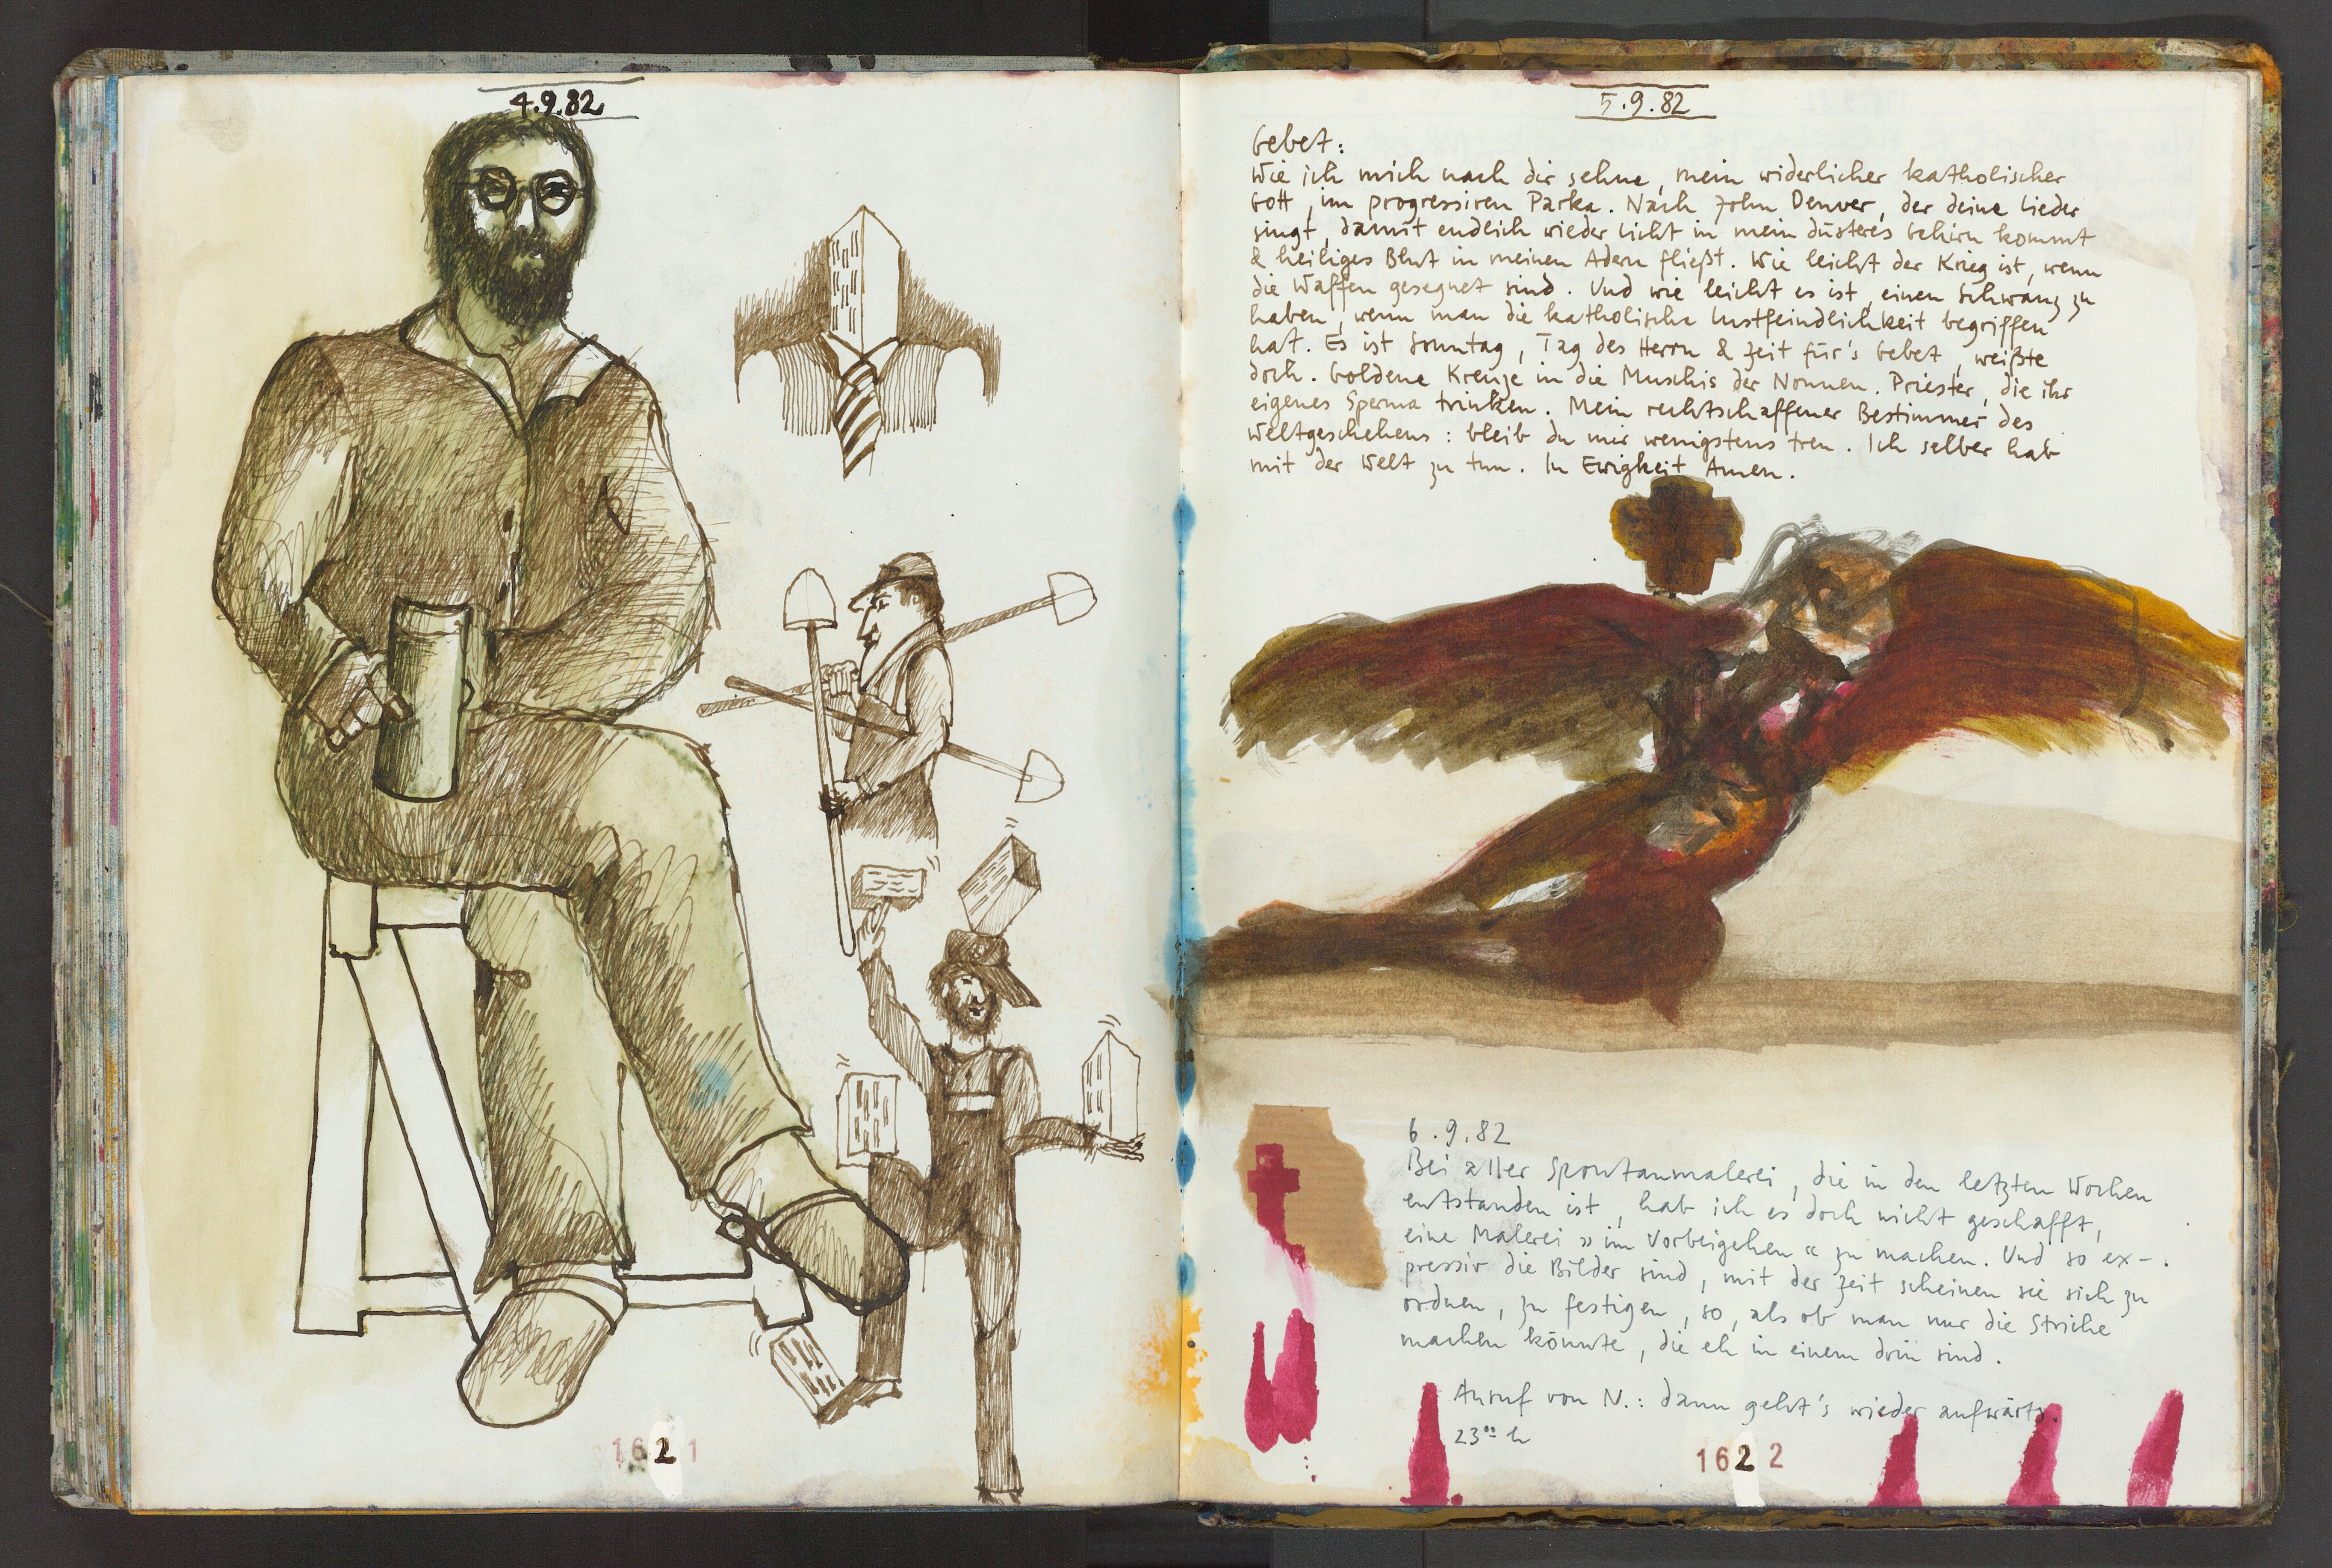 4.9.82
1621
5.9.82
Gebet:
Wie ich mich nach dir sehne, mein widerlicher katholischer
Gott, im progressiven Parka. Nach John Denver, der deine Lieder
singt, damit endlich wieder Licht in mein düsteres Gehirn kommt
& heiliges Blut in meinen Adern fließt. Wie leicht der Krieg ist, wenn
die Waffen gesegnet sind. Und wie leicht es ist, einen Schwanz zu
haben, wenn man die katholische Lustfeindlichkeit begriffen
hat. Es ist Sonntag, Tag des Herrn & Zeit für's Gebet, weißte
doch. Goldene Kreuze in die Muschis der Nonnen. Priester, die ihr
eigenes Sperma trinken. Mein rechtschaffener Bestimmer des
Weltgeschehens: bleib du mir wenigstens treu. Ich selber hab
mit der Welt zu tun. In Ewigkeit Amen.
6.9.82
Bei aller Spontanmalerei, die in den letzten Wochen
entstanden ist, hab ich es doch nicht geschafft,
eine Malerei »im Vorbeigehen« zu machen. Und so ex-
pressiv die Bilder sind, mit der Zeit scheinen sie sich zu
ordnen, zu festigen, so, als ob man nur die Striche
machen könnte, die eh in einem drin sind.
Anruf von N.: dann geht's wieder aufwärts.
23⁰⁰ h
1622